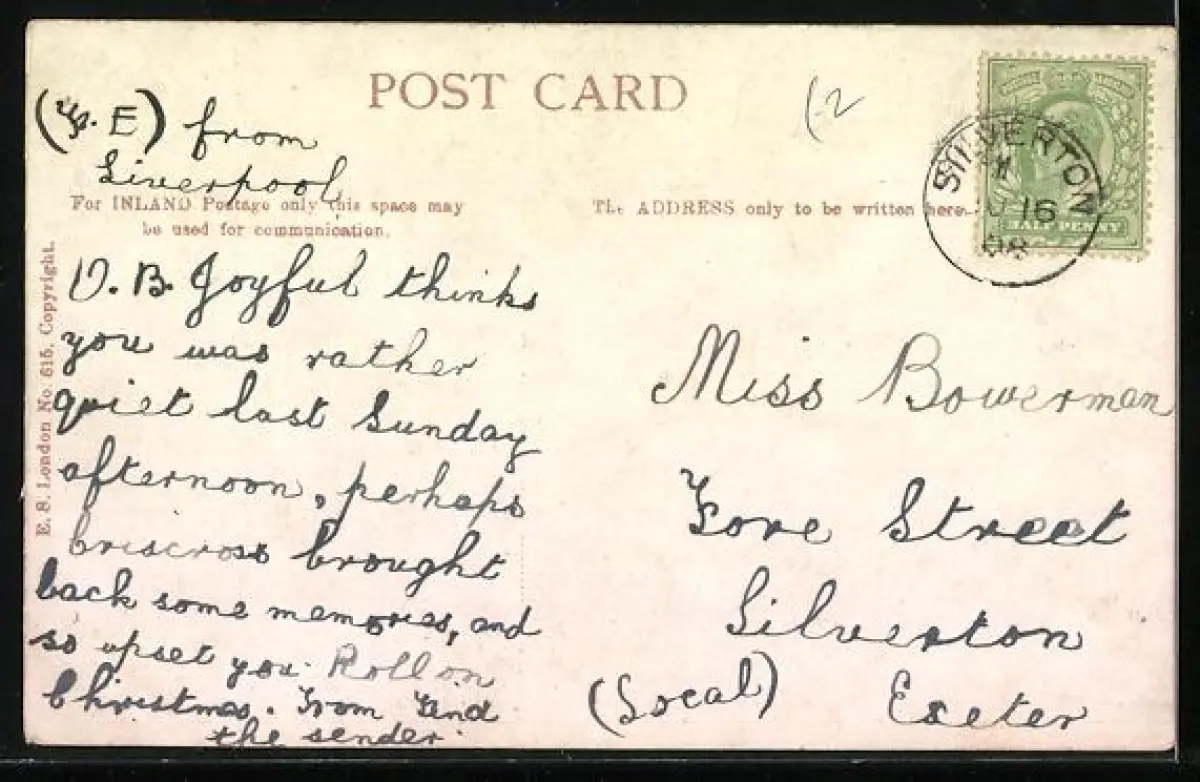 POST CARD
(-2
E) from
Liverpool
For INLAND Postage only this space may
be used for communication.
The ADDRESS only to be written here.
SILVERTON
16
08
HALF PENNY
E. S. London No. 615. Copyright.
D. B. Joyful thinks
you was rather
quiet last Sunday
afternoon, perhaps
criscross brought
back some memories, and
so upset you. Roll on
Christmas. From
the sender.
Miss Bowerman
Fore Street
Silverton
(Local) Exeter